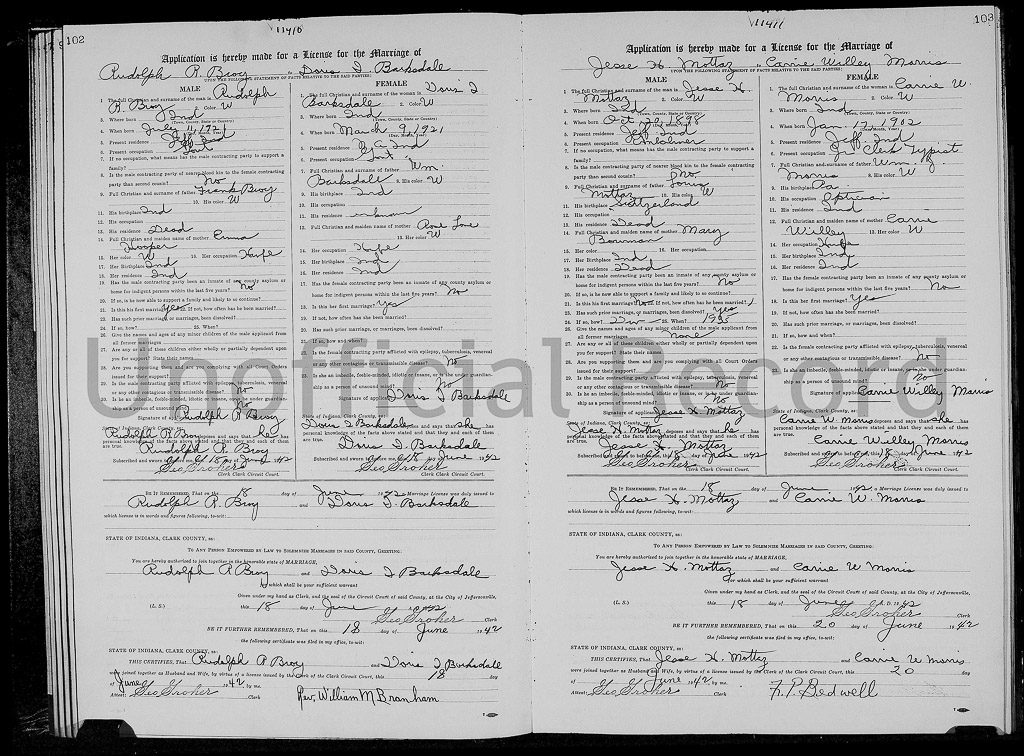 102
11410
Application is hereby made for a License for the Marriage of
Rudolph R. Broy to Doris I. Barksdale
UPON THE FOLLOWING STATEMENT OF FACTS RELATIVE TO THE SAID PARTIES:
MALE
1. The full Christian and surname of the man is Rudolph
R. Broy 2. Color W
3. Where born Ind
(Town, County, State or Country)
4. When born July 11, 1921
5. Present residence
6. Present occupation
7. If no occupation, what means has the male contracting party to support a
family?
8. Is the male contracting party of nearer blood kin to the female contracting
party than second cousin? No
9. Full Christian and surname of father Frank Broy
10. His color W
11. His birthplace Ind
12. His occupation
13. His residence Dead
14. Full Christian and maiden name of mother Emma
Hooper
15. Her color W 16. Her occupation Hwife
17. Her Birthplace Ind
18. Her residence Ind
19. Has the male contracting party been an inmate of any county asylum or
home for indigent persons within the last five years? No
20. If so, is he now able to support a family and likely to so continue?
21. Is this his first marriage? Yes 22. If not, how often has he been married?
23. Has such prior marriage, or marriages, been dissolved?
24. If so, how? 25. When?
26. Give the names and ages of any minor children of the male applicant from
all former marriages
27. Are any or all of these children either wholly or partially dependent upon
you for support? State their names
28. Are you supporting them and are you complying with all Court Orders
issued for their support?
29. Is the male contracting party afflicted with epilepsy, tuberculosis, venereal
or any other contagious or transmissible disease? No
30. Is he an imbecile, feeble-minded, idiotic or insane, or is he under guardian-
ship as a person of unsound mind? No
Signature of applicant Rudolph R Broy
State of Indiana, Clark County, ss:
Rudolph R Broy deposes and says that he has
personal knowledge of the facts above stated and that they and each of them
are true. Rudolph R. Broy
Subscribed and sworn to before me, this 18 day of June 1942
Geo Groher
Clerk Clark Circuit Court.
FEMALE
1. The full Christian and surname of the woman is Doris I
Barksdale 2. Color W
3. Where born Ind
(Town, County, State or Country)
4. When born March 9, 1921
(Day, Month, Year)
5. Present residence
6. Present occupation
7. Full Christian and surname of father Wm
Barksdale 8. His color W
9. His birthplace Ind
10. His occupation
11. His residence unknown
12. Full Christian and maiden name of mother
13. Her color W
14. Her occupation Hwife
15. Her birthplace Ind
16. Her residence Ind
17. Has the female contracting party been an inmate of any county asylum or
home for indigent persons within the last five years? No
18. Is this her first marriage? Yes
19. If not, how often has she been married?
20. Has such prior marriage, or marriages, been dissolved?
21. If so, how and when?
22. Is the female contracting party afflicted with epilepsy, tuberculosis, venereal
or any other contagious or transmissible disease? No
23. Is she an imbecile, feeble-minded, idiotic or insane, or is she under guardian-
ship as a person of unsound mind? No
Signature of applicant Doris I Barksdale
State of Indiana, Clark County, ss:
Doris I Barksdale deposes and says that she has
personal knowledge of the facts above stated and that they and each of them
are true. Doris I. Barksdale
Subscribed and sworn to before me, this 18 day of June 1942
Geo Groher
Clerk Clark Circuit Court.
BE IT REMEMBERED, That on the 18 day of June 1942 a Marriage License was duly issued to
Rudolph R. Broy and Doris I. Barksdale
which license is in words and figures following, to-wit:
STATE OF INDIANA, CLARK COUNTY, ss:
TO ANY PERSON EMPOWERED BY LAW TO SOLEMNIZE MARRIAGES IN SAID COUNTY, GREETING:
You are hereby authorized to join together in the honorable state of MARRIAGE,
Rudolph R Broy and Doris I Barksdale
for which shall be your sufficient warrant
Given under my hand as Clerk, and the seal of the Circuit Court of said County, at the City of Jeffersonville,
(L. S.) this 18 day of June A. D. 1942
Geo Groher Clerk
BE IT FURTHER REMEMBERED, That on this 18 day of June 1942
the following certificate was filed in my office, to-wit:
STATE OF INDIANA, CLARK COUNTY, ss:
THIS CERTIFIES, That Rudolph R Broy and Doris I Barksdale
were joined together as Husband and Wife, by virtue of a license issued by the Clerk of the Clark Circuit Court, this 18 day
of June 1942 by me.
Attest: Geo Groher Clerk Rev. William M Branham
103
11411
Application is hereby made for a License for the Marriage of
Jesse H. Mottaz to Carrie Willey Morris
UPON THE FOLLOWING STATEMENT OF FACTS RELATIVE TO THE SAID PARTIES:
MALE
1. The full Christian and surname of the man is Jesse H.
Mottaz 2. Color W
3. Where born Ind
(Town, County, State or Country)
4. When born Oct. 20, 1898
5. Present residence Jeff. Ind
6. Present occupation
7. If no occupation, what means has the male contracting party to support a
family?
8. Is the male contracting party of nearer blood kin to the female contracting
party than second cousin? No
9. Full Christian and surname of father Louis
Mottaz 10. His color W
11. His birthplace Switzerland
12. His occupation
13. His residence Dead
14. Full Christian and maiden name of mother Mary
Bowman
15. Her color 16. Her occupation
17. Her Birthplace Ind
18. Her residence Dead
19. Has the male contracting party been an inmate of any county asylum or
home for indigent persons within the last five years? No
20. If so, is he now able to support a family and likely to so continue?
21. Is this his first marriage? No 22. If not, how often has he been married? 1
23. Has such prior marriage, or marriages, been dissolved? Yes
24. If so, how? Div 25. When? 1935
26. Give the names and ages of any minor children of the male applicant from
all former marriages None
27. Are any or all of these children either wholly or partially dependent upon
you for support? State their names
28. Are you supporting them and are you complying with all Court Orders
issued for their support?
29. Is the male contracting party afflicted with epilepsy, tuberculosis, venereal
or any other contagious or transmissible disease? No
30. Is he an imbecile, feeble-minded, idiotic or insane, or is he under guardian-
ship as a person of unsound mind? No
Signature of applicant Jesse H Mottaz
State of Indiana, Clark County, ss:
Jesse H. Mottaz deposes and says that he has
personal knowledge of the facts above stated and that they and each of them
are true. Jesse H. Mottaz
Subscribed and sworn to before me, this 18 day of June 1942
Geo Groher
Clerk Clark Circuit Court.
FEMALE
1. The full Christian and surname of the woman is Carrie W.
Morris 2. Color W
3. Where born Ind
(Town, County, State or Country)
4. When born Jan. 17, 1902
(Day, Month, Year)
5. Present residence Jeff Ind
6. Present occupation Clerk Typist
7. Full Christian and surname of father Wm. J.
Morris 8. His color W
9. His birthplace Pa.
10. His occupation Optician
11. His residence Ind
12. Full Christian and maiden name of mother Carrie
Willey 13. Her color W
14. Her occupation Hwife
15. Her birthplace Ind
16. Her residence Ind
17. Has the female contracting party been an inmate of any county asylum or
home for indigent persons within the last five years? No
18. Is this her first marriage? Yes
19. If not, how often has she been married?
20. Has such prior marriage, or marriages, been dissolved?
21. If so, how and when?
22. Is the female contracting party afflicted with epilepsy, tuberculosis, venereal
or any other contagious or transmissible disease? No
23. Is she an imbecile, feeble-minded, idiotic or insane, or is she under guardian-
ship as a person of unsound mind? No
Signature of applicant Carrie Willey Morris
State of Indiana, Clark County, ss:
Carrie W. Morris deposes and says that she has
personal knowledge of the facts above stated and that they and each of them
are true. Carrie Willey Morris
Subscribed and sworn to before me, this 18 day of June 1942
Geo Groher
Clerk Clark Circuit Court.
BE IT REMEMBERED, That on the 18 day of June 1942 a Marriage License was duly issued to
Jesse H. Mottaz and Carrie W. Morris
which license is in words and figures following, to-wit:
STATE OF INDIANA, CLARK COUNTY, ss:
TO ANY PERSON EMPOWERED BY LAW TO SOLEMNIZE MARRIAGES IN SAID COUNTY, GREETING:
You are hereby authorized to join together in the honorable state of MARRIAGE,
Jesse H. Mottaz and Carrie W Morris
for which shall be your sufficient warrant
Given under my hand as Clerk, and the seal of the Circuit Court of said County, at the City of Jeffersonville,
(L. S.) this 18 day of June A. D. 1942
Geo Groher Clerk
BE IT FURTHER REMEMBERED, That on this 20 day of June 1942
the following certificate was filed in my office, to-wit:
STATE OF INDIANA, CLARK COUNTY, ss:
THIS CERTIFIES, That Jesse H. Mottaz and Carrie W Morris
were joined together as Husband and Wife, by virtue of a license issued by the Clerk of the Clark Circuit Court, this 20 day
of June 1942 by me.
Attest: Geo Groher Clerk F. P. Bedwell
Unofficial Record